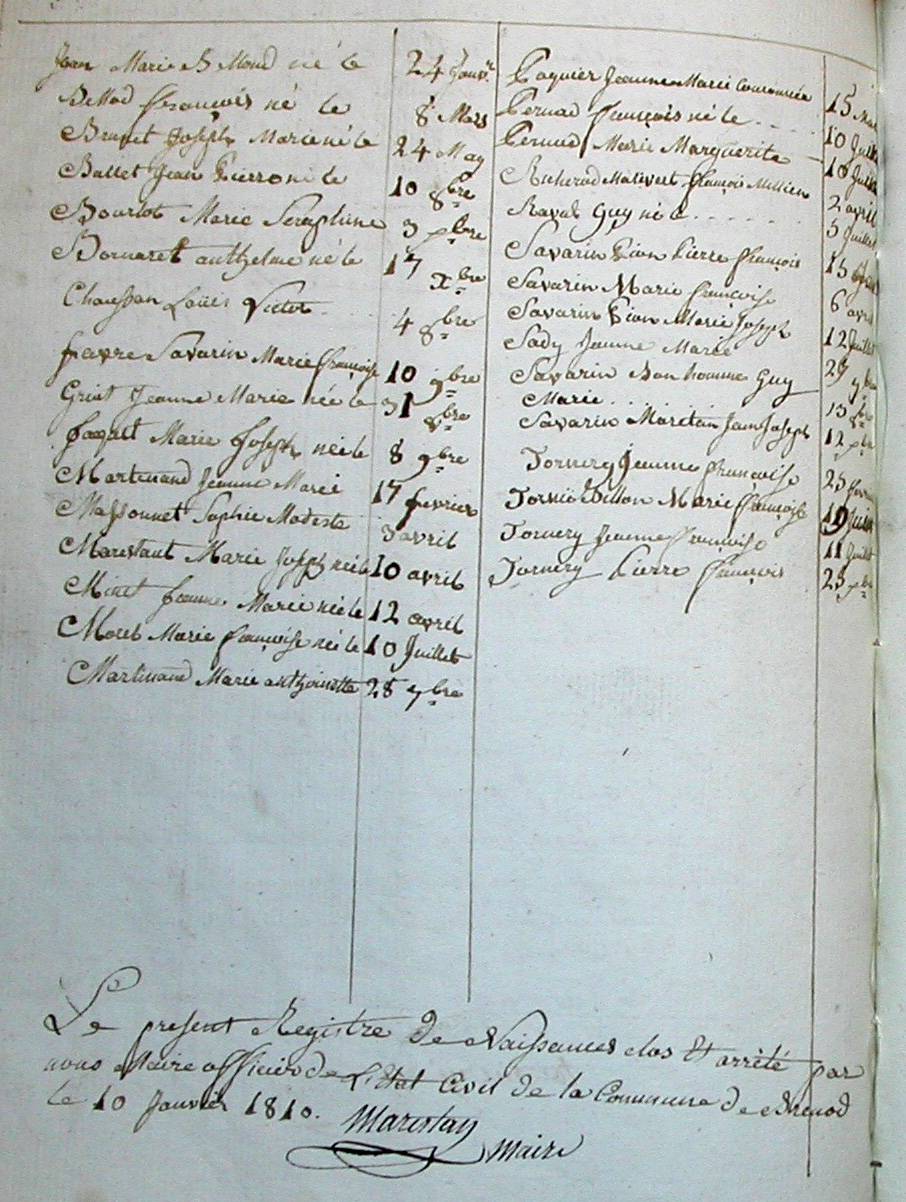 Jean Marie Billoud né le 24 Janv.r
Billod François né le 8 Mars
Brunet Joseph Marie né le 24 May
Ballet Jean Pierre né le 10 8bre
Bourlot Marie Seraphine 3 xbre
Bornaret anthelme né le 17 xbre
Chaussan Louis Victor 4 8bre
favre Savarin Marie françoise 10 9bre
Griot Jeanne Marie née le 31 8bre
Jaquet Marie Joseph née le 8 9bre
Martinand Jeanne Marie 17 fevrier
Massonnet Sophie Modeste 3 avril
Marestant Marie Joseph née le 10 avril
Jeanne Marie née le 12 avril
Morel Marie françoise née le 10 Juillet
Martinand Marie anthoinette 28 7bre
Paquier Jeanne Marie 15 Mai
Pernod françois né le 10 Juillet
Pernod Marie Marguerite 10 Juillet
Richerod Mativert françois 2 avril
Raval Guy né le 5 Juillet
Savarin Pion Pierre françois 15
Savarin Marie françoise 6 avril
Savarin Pion Marie Joseph 12 Juillet
Sady Jeanne Marie 29 7bre
Savarin Bonhomme Guy
Marie 13 8bre
Savarin Maritain Jean Joseph 12 xbre
Tornery Jeanne françoise 25 fevrier
Billon Marie françoise 19 Juin
Tornery Jeanne françoise 11 Juillet
Tornery Pierre françois 25 xbre
Le present Registre de Naissances clos Et arrêté par
nous Maire officier de L'Etat Civil de la Commune de Brenod
le 10 Janvier 1810. Marestan
Maire